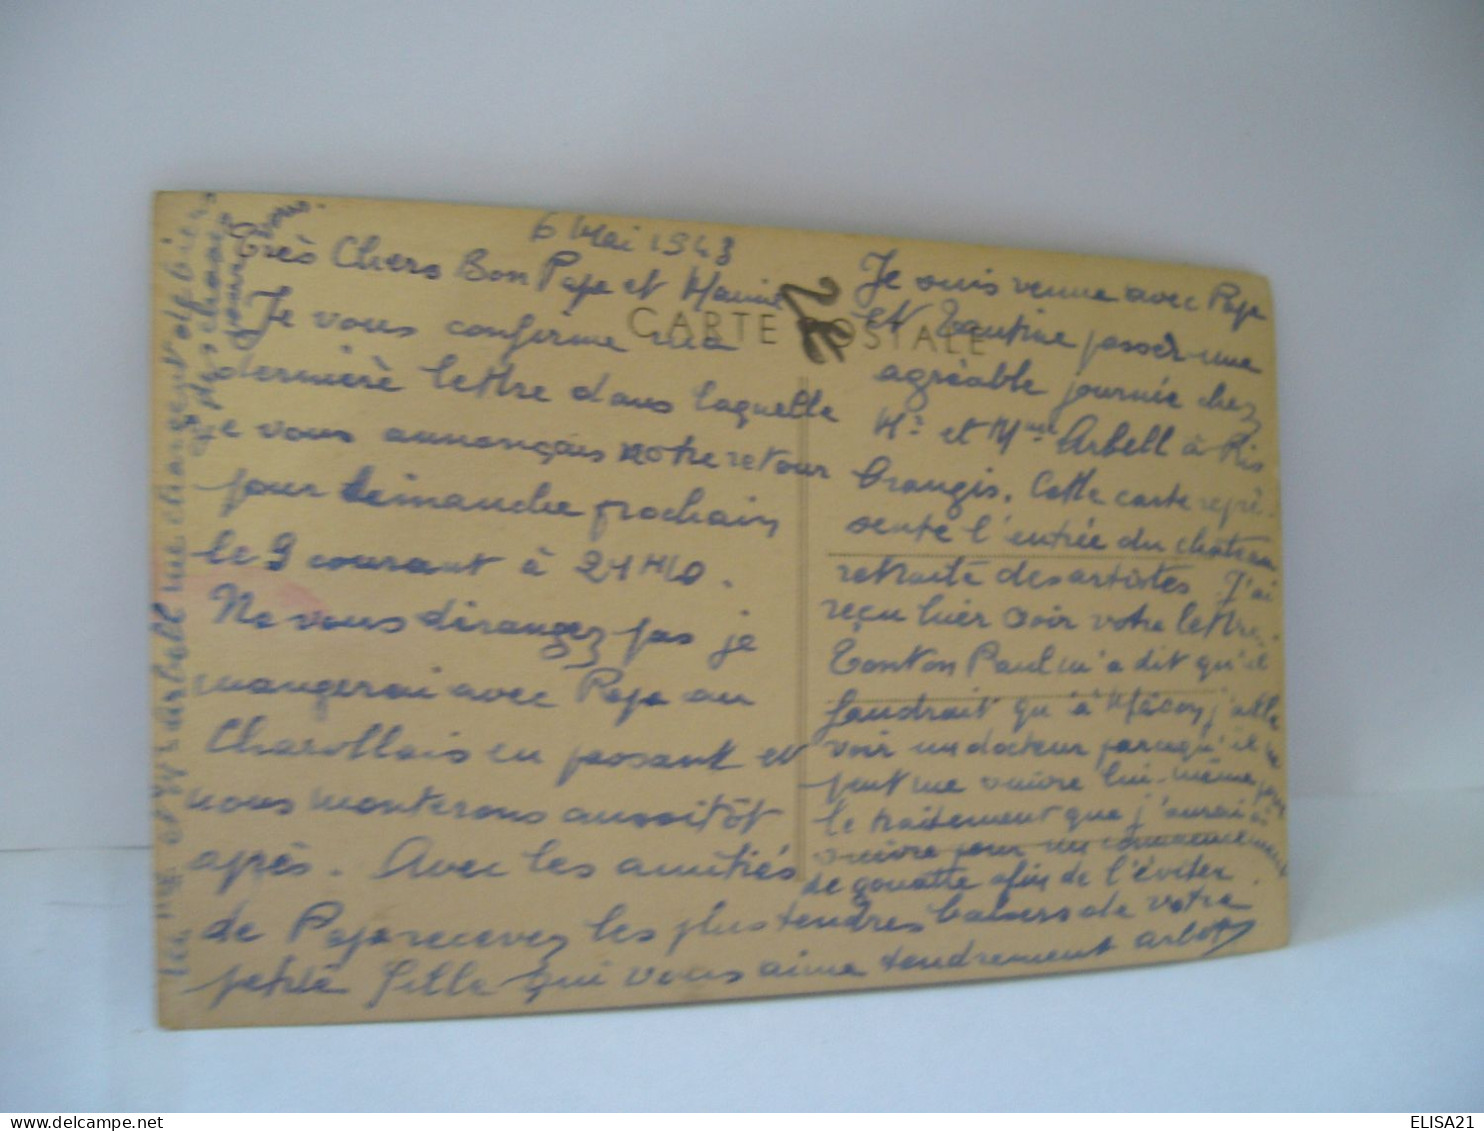 6 Mai 1943
Très Chers Bon Papa et Mamie
CARTE POSTALE
Je vous confirme ma
dernière lettre dans laquelle
je vous annonçais notre retour
pour dimanche prochain
le 9 courant à 21H10.
Ne vous dérangez pas je
mangerai avec Papa au
Charollais en passant et
nous monterons aussitôt
après. Avec les amitiés
de Papa recevez les plus tendres baisers de votre
petite fille qui vous aime tendrement
Je suis venue avec Papa
et Tantine passer une
agréable journée chez
Mr et Mme Arbell à Ris
Orangis. Cette carte repré-
sente l'entrée du château
retraite des artistes. J'ai
reçu hier soir votre lettre.
Tonton Paul m'a dit qu'il
faudrait qu'à Mâcon j'aille
voir un docteur puisqu'il ne
peut me suivre lui-même pour
le traitement que j'aurai à
suivre pour un commencement
de gouatte afin de l'éviter.
Mr et Mme Arbell me chargent de bien
des choses
pour vous.
ELISA21